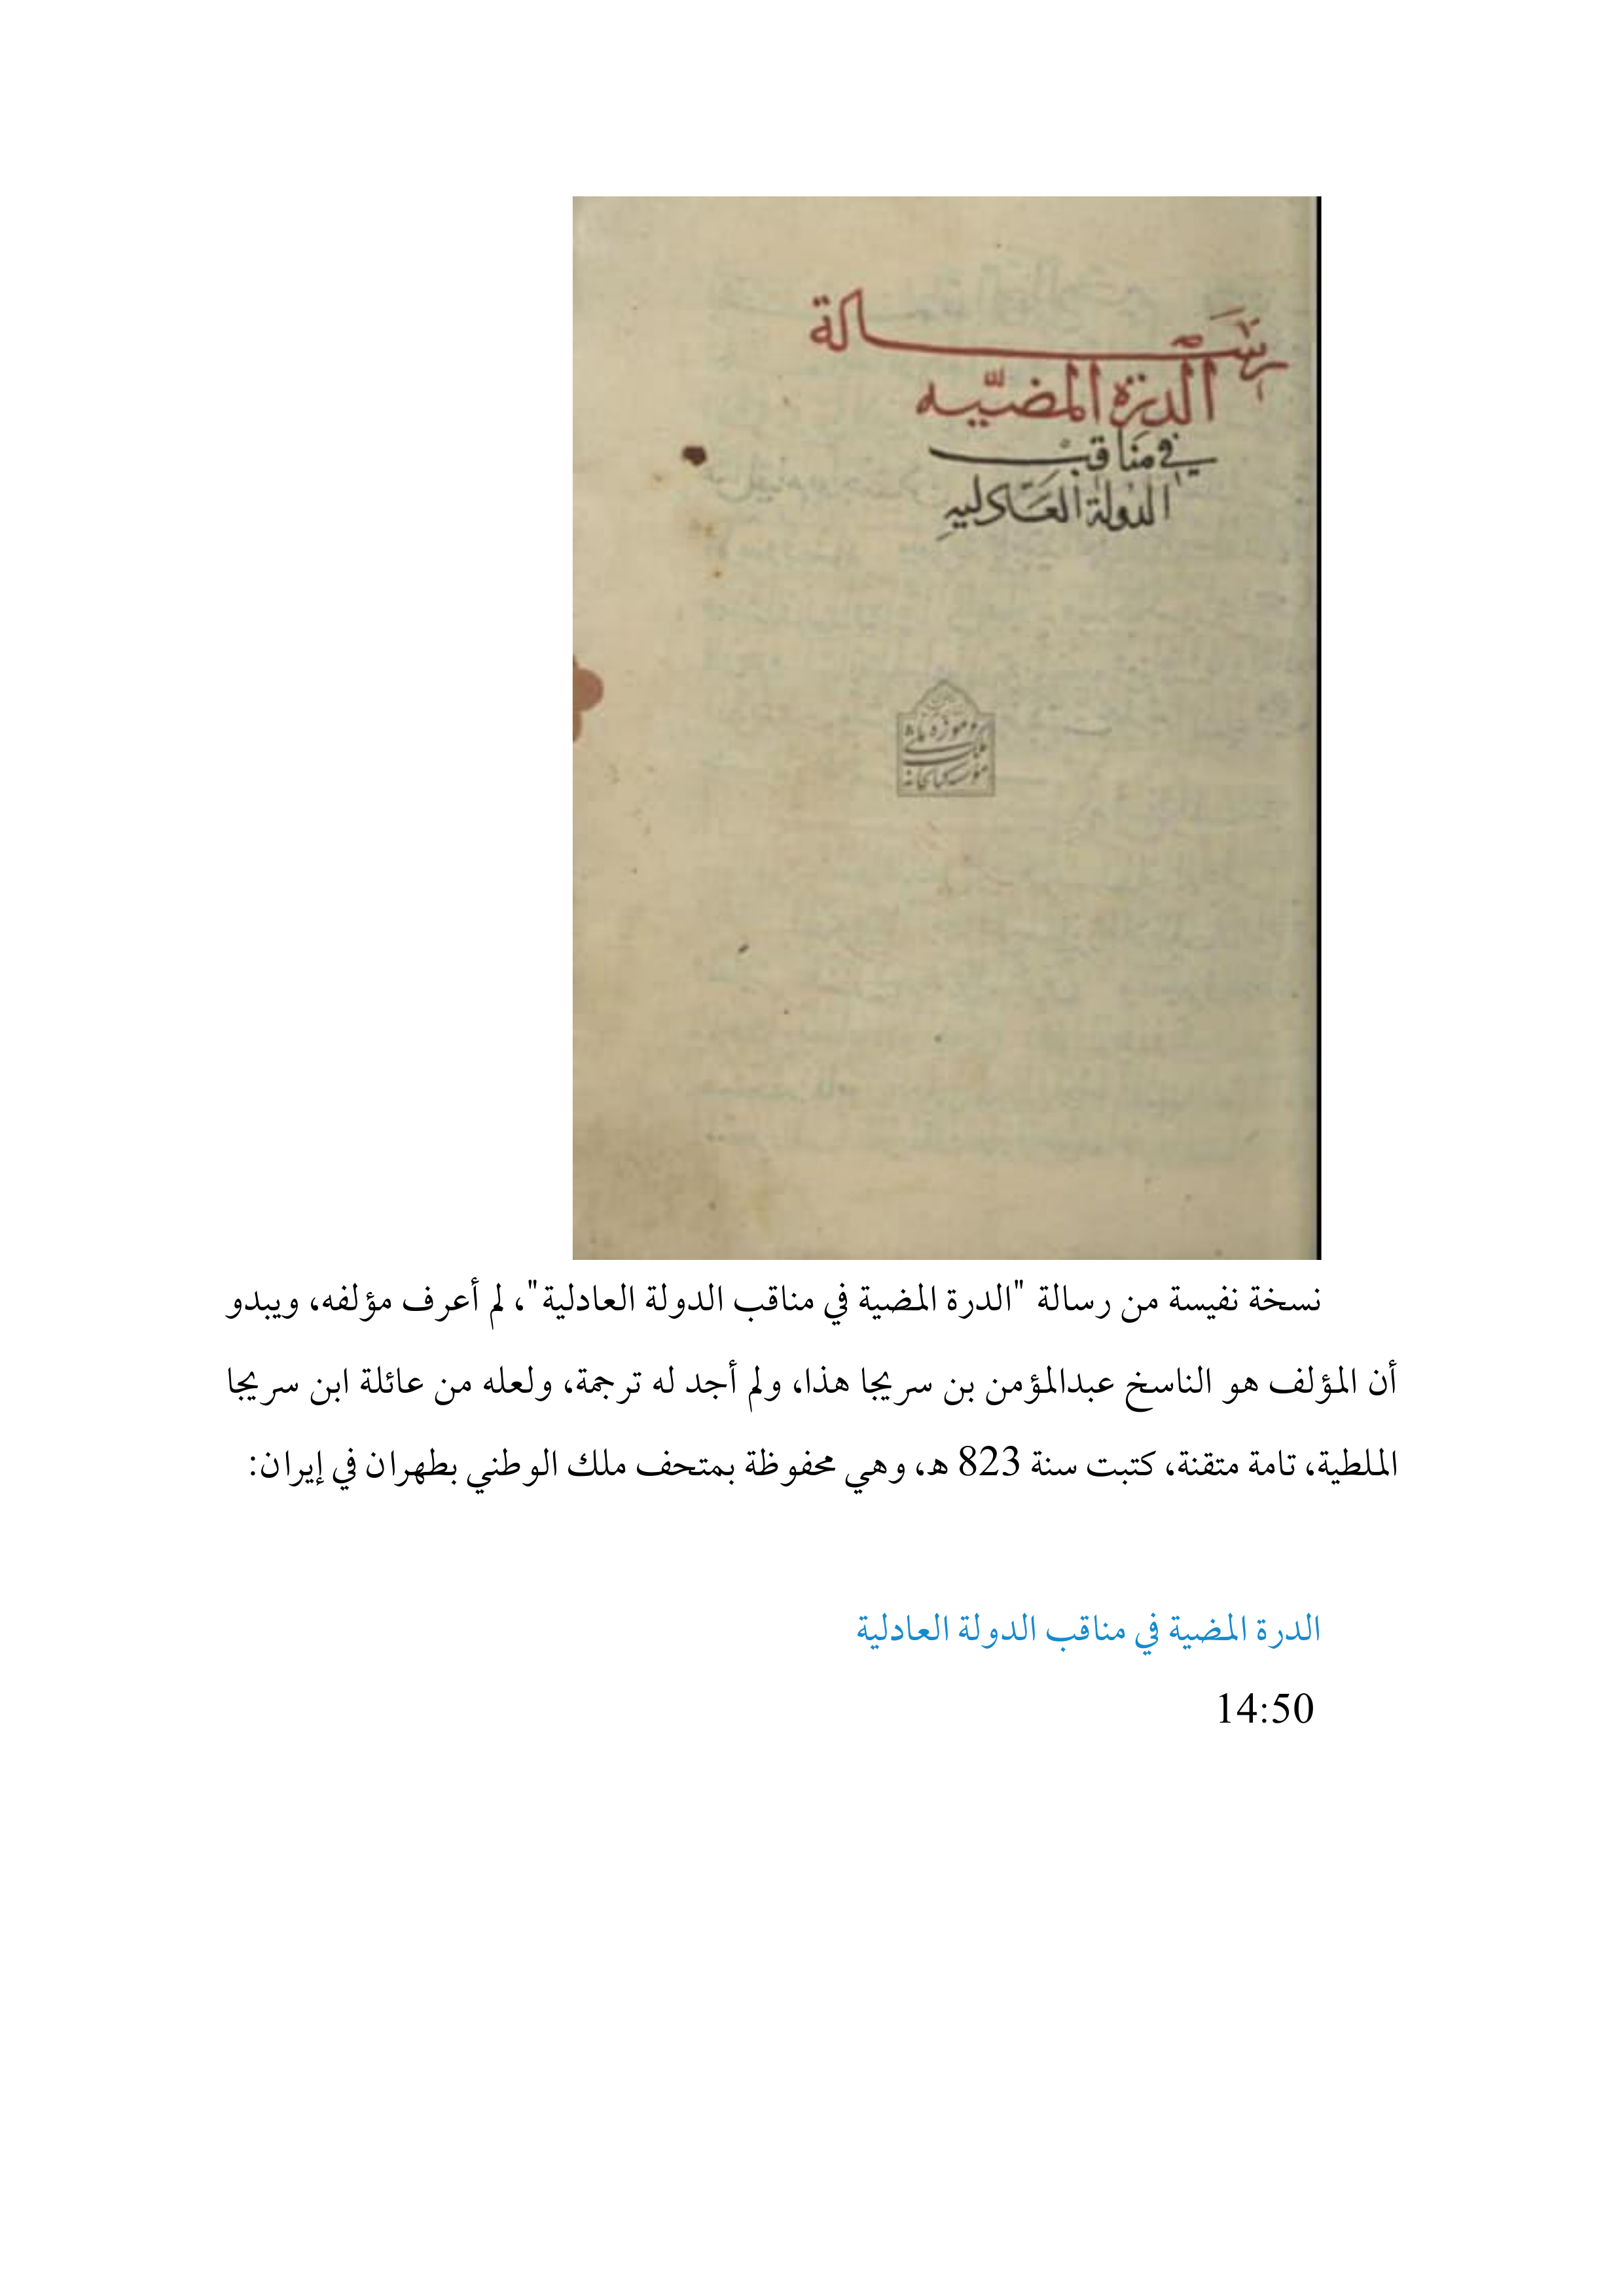 رسالة
الدرة المضيّه
في مناقب
الدولة العادليه
نسخة نفيسة من رسالة "الدرة المضية في مناقب الدولة العادلية"، لم أعرف مؤلفه، ويبدو
أن المؤلف هو الناسخ عبدالمؤمن بن سريجا هذا، ولم أجد له ترجمة، ولعله من عائلة ابن سريجا
الملطية، تامة متقنة، كتبت سنة 823 هـ، وهي محفوظة بمتحف ملك الوطني بطهران في إيران:
الدرة المضية في مناقب الدولة العادلية
14:50